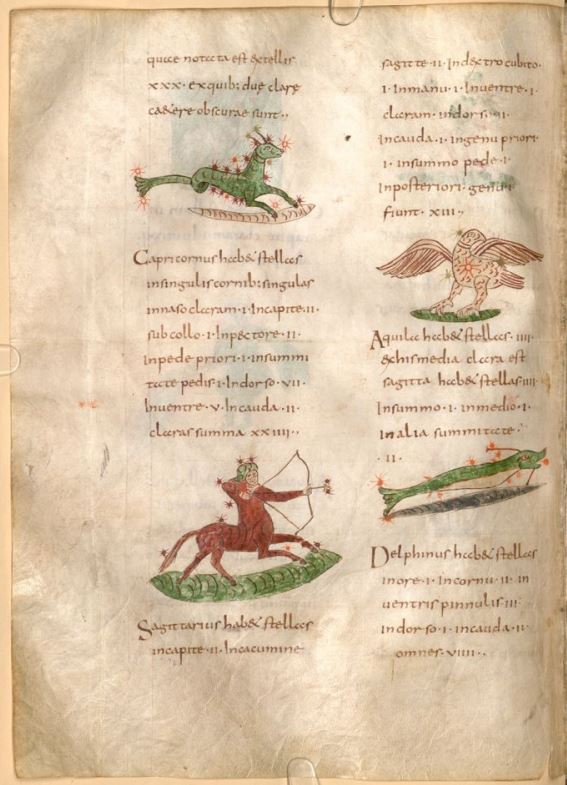 quae notata est & stellis
xxx· exquib; due clarę
cad&ere obscurae sunt··
Capricornus hab& stellas
insingulis cornib; singulas
innaso claram ·i· Incapite ·ii·
sub collo ·i· Inpectore ·ii·
Inpede priori ·i· insummi
tate pedis ·i· Indorso ·vii·
Inuentre ·v· Incauda ·ii·
claras summa xxiiii··
Sagittarius hab& stellas
incapite ·ii· Incacumine
sagitte ·ii· Indextro cubito·
·i· Inmanu ·i· Inuentre ·i·
claram· indorso
Incauda ·i· ingenu priori·
·i· insummo pede ·i·
Inposteriori· genu
fiunt· xiii··
Aquila hab& stellas· iiii·
&his media clara est
sagitta hab& stellas iiii
Insummo ·i· inmedio ·i·
inalia summitate·
·ii·
Delphinus hab& stellas
inore ·i· Incornu ·ii· in
uentris pinnulis iii·
indorso ·i· incauda ·ii·
omnes· viiii··